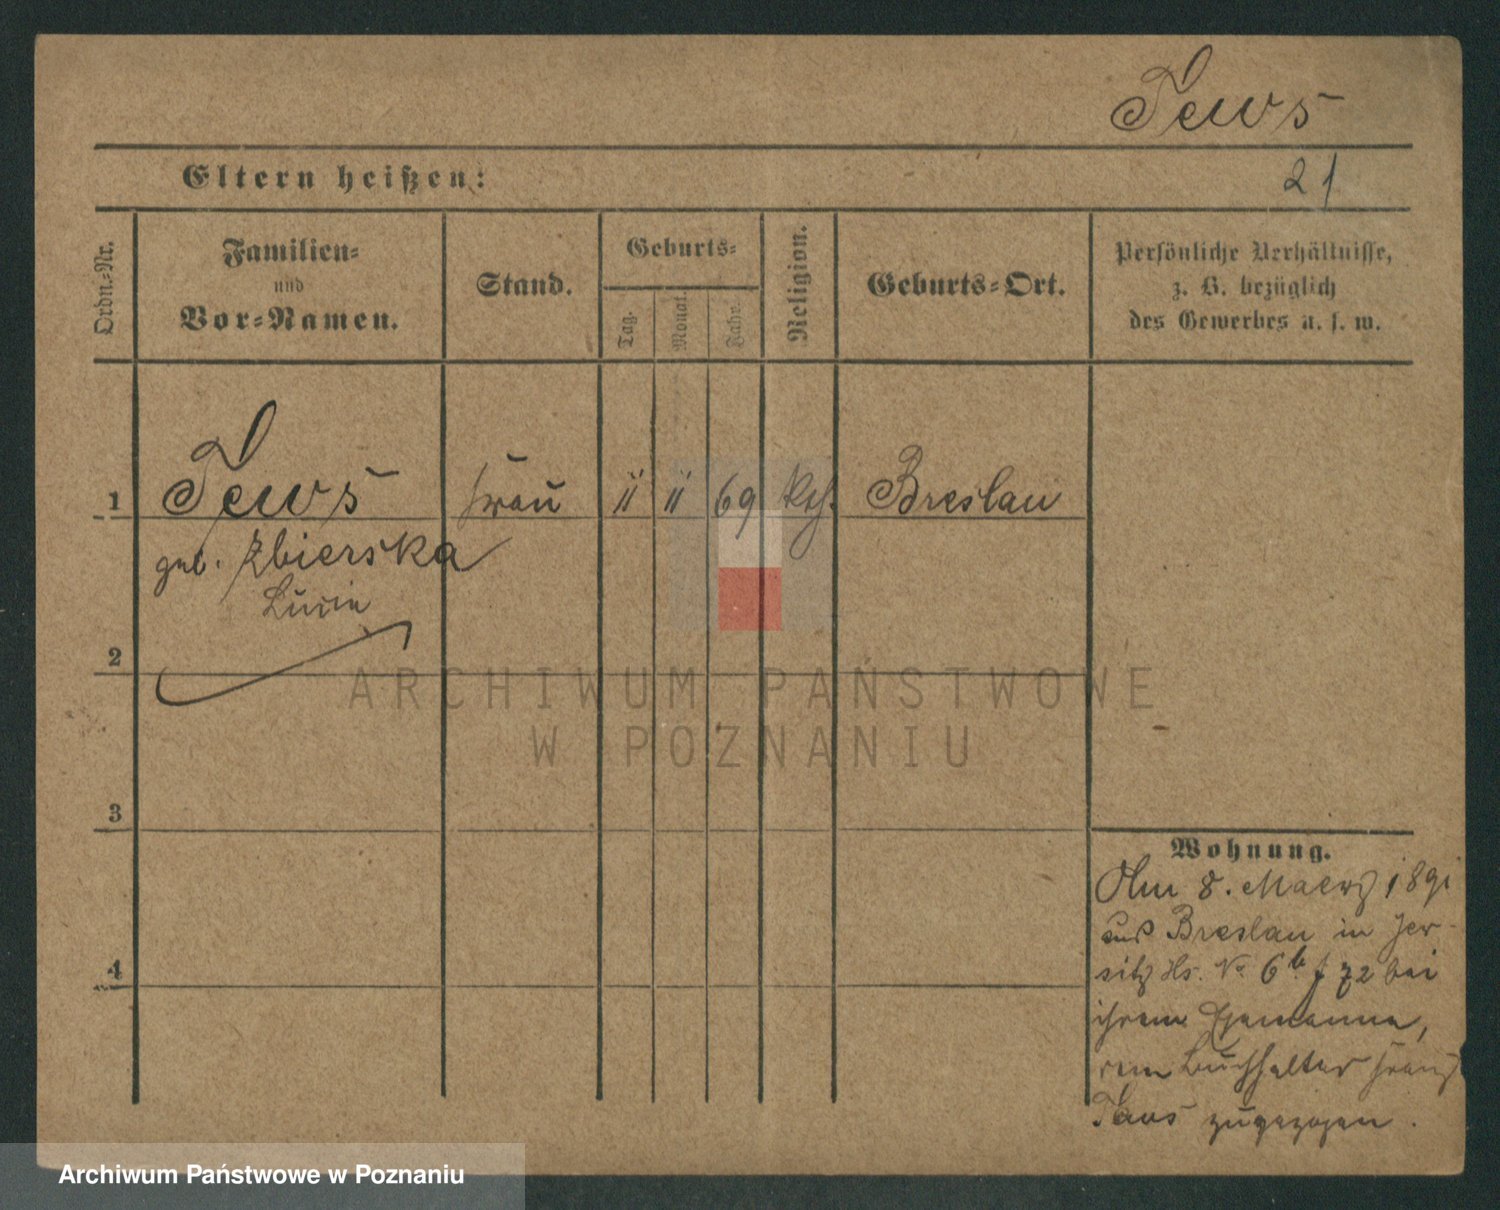 Tews
Eltern heißen:
21
Ordn.-Nr.
Familien-
und
Vor-Namen.
Stand.
Geburts-
Tag.
Monat.
Jahr.
Religion.
Geburts-Ort.
Persönliche Verhältnisse,
z. B. bezüglich
des Gewerbes u. s. w.
1
Tews
Frau
11
11
69
kth.
Breslau
geb. Zbierska
Lucie
2
ARCHIWUM PAŃSTWOWE
W POZNANIU
3
Wohnung.
Am 8. Maerz 1891
aus Breslau in Jer-
sitz Hs. No 6b / 72 bei
ihrem Ehemanne,
dem Buchhalter Franz
Tews zugezogen.
4
Archiwum Państwowe w Poznaniu